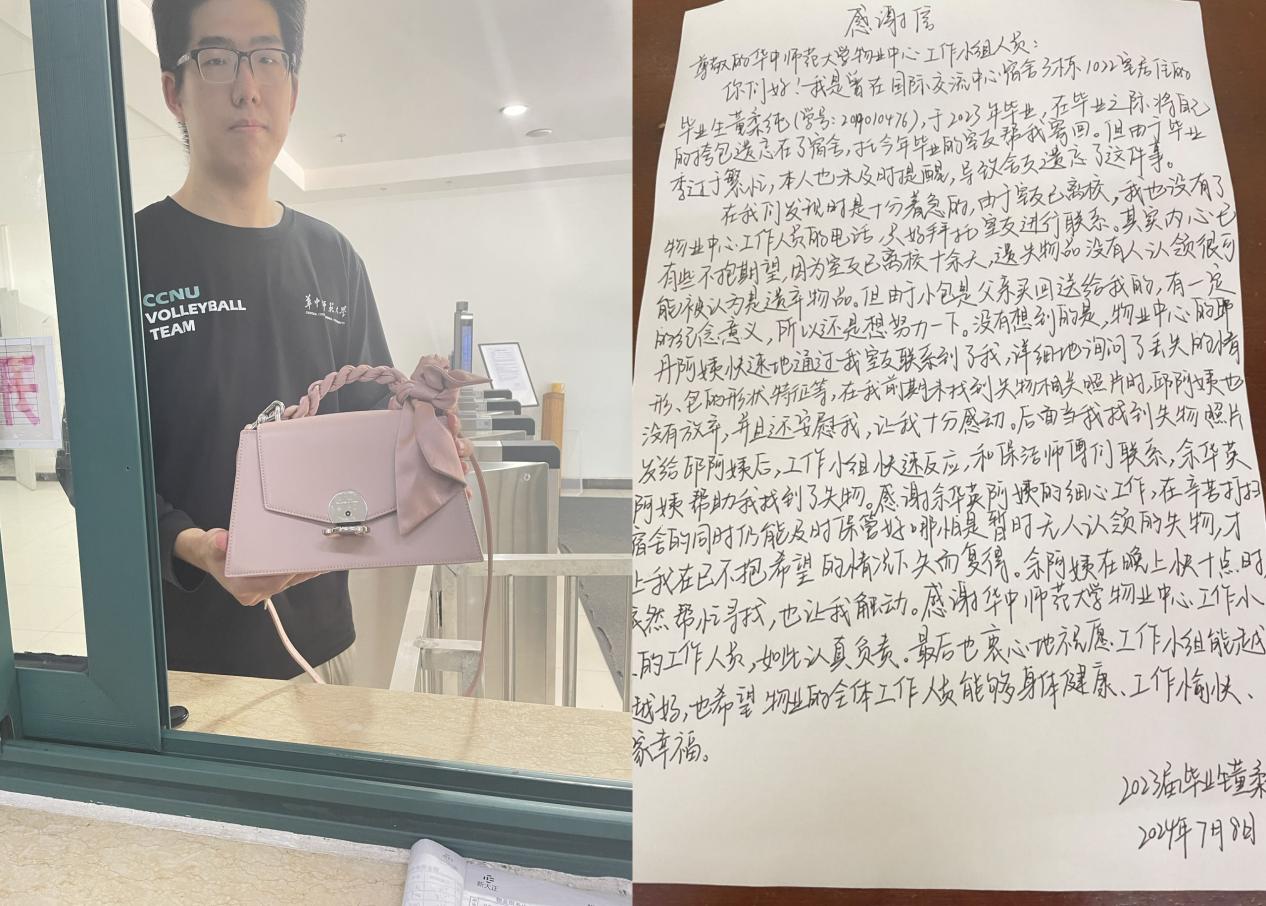 CCNU
VOLLEYBALL
TEAM
华中师范大学
新大正
感谢信
尊敬的华中师范大学物业中心工作小组人员：
你们好！我是曾在国际交流中心宿舍3栋1022室居住的
毕业生董柔纯（学号：2019010476），于2023年毕业，在毕业之际将自己
的挎包遗忘在了宿舍，托今年毕业的室友帮我寄回。但由于毕业
季过于繁忙，本人也未及时提醒，导致舍友遗忘了这件事。
在我们发现时是十分着急的，由于室友已离校，我也没有了
物业中心工作人员的电话，只好拜托室友进行联系。其实内心已
有些不抱期望，因为室友已离校十余天，遗失物品没有人认领很可
能被认为是遗弃物品。但由于小包是父亲买回送给我的，有一定
的纪念意义，所以还是想努力一下。没有想到的是，物业中心的邱
丹阿姨快速地通过我室友联系到了我，详细地询问了丢失的情
形、包的形状特征等，在我前期未找到失物相关照片时，邱阿姨也
没有放弃，并且还安慰我，让我十分感动。后面当我找到失物照片
发给邱阿姨后，工作小组快速反应，和保洁师傅们联系，余华英
阿姨帮助我找到了失物。感谢余华英阿姨的细心工作，在辛苦打扫
宿舍的同时仍能及时保管好哪怕是暂时无人认领的失物，才
让我在已不抱希望的情况下失而复得。余阿姨在晚上快十点时，
依然帮忙寻找，也让我触动。感谢华中师范大学物业中心工作小
的工作人员，如此认真负责。最后也衷心地祝愿工作小组能越
越好，也希望物业的全体工作人员能够身体健康、工作愉快、
家幸福。
2023届毕业生董柔
2024年7月8日